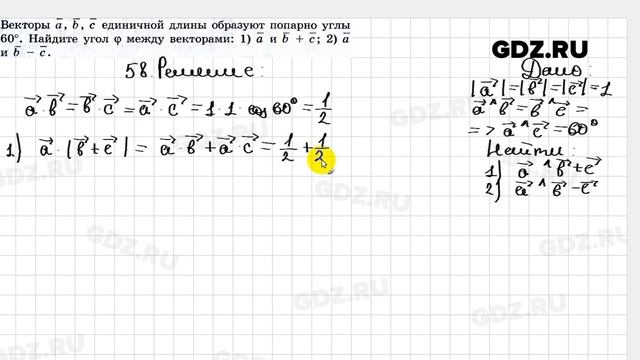 Векторы a̅, b̅, c̅ единичной длины образуют попарно углы
60°. Найдите угол φ между векторами: 1) a̅ и b̅ + c̅; 2) a̅
и b̅ − c̅.
GDZ.RU
58. Решение:
a⃗ · b⃗ = b⃗ · c⃗ = a⃗ · c⃗ = 1 · 1 cos 60° = 1/2
1) a⃗ · |b⃗ + c⃗| = a⃗ · b⃗ + a⃗ · c⃗ = 1/2 + 1/2
Дано:
|a⃗| = |b⃗| = |c⃗| = 1
a⃗ ^ b⃗ = b⃗ ^ c⃗ =
=> a⃗ ^ c⃗ = 60°
Найти:
1) a⃗ ^ b⃗ + c⃗
2) a⃗ ^ b⃗ − c⃗
GDZ.RU
GDZ.RU
GDZ.RU
GDZ.RU
GDZ.RU
GDZ.RU